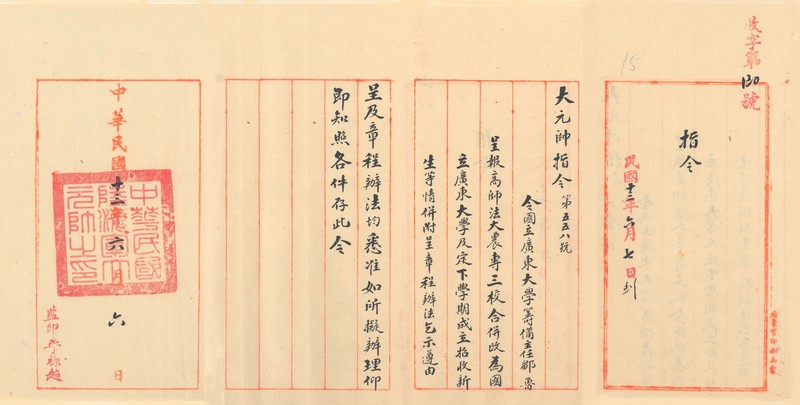 收字第130號
15
指令
民國十三年六月七日到
大元帥指令第五五八號
令國立廣東大學籌備主任鄒魯
呈報高師法大農專三校合併改為國
立廣東大學及定下學期成立招收新
生等情併附呈章程辦法乞示遵由
呈及章程辦法均悉准如所擬辦理仰
即知照各件存此令
中華民國十三年六月六日
中華民國
陸海軍大
元帥之印
監印李祿超